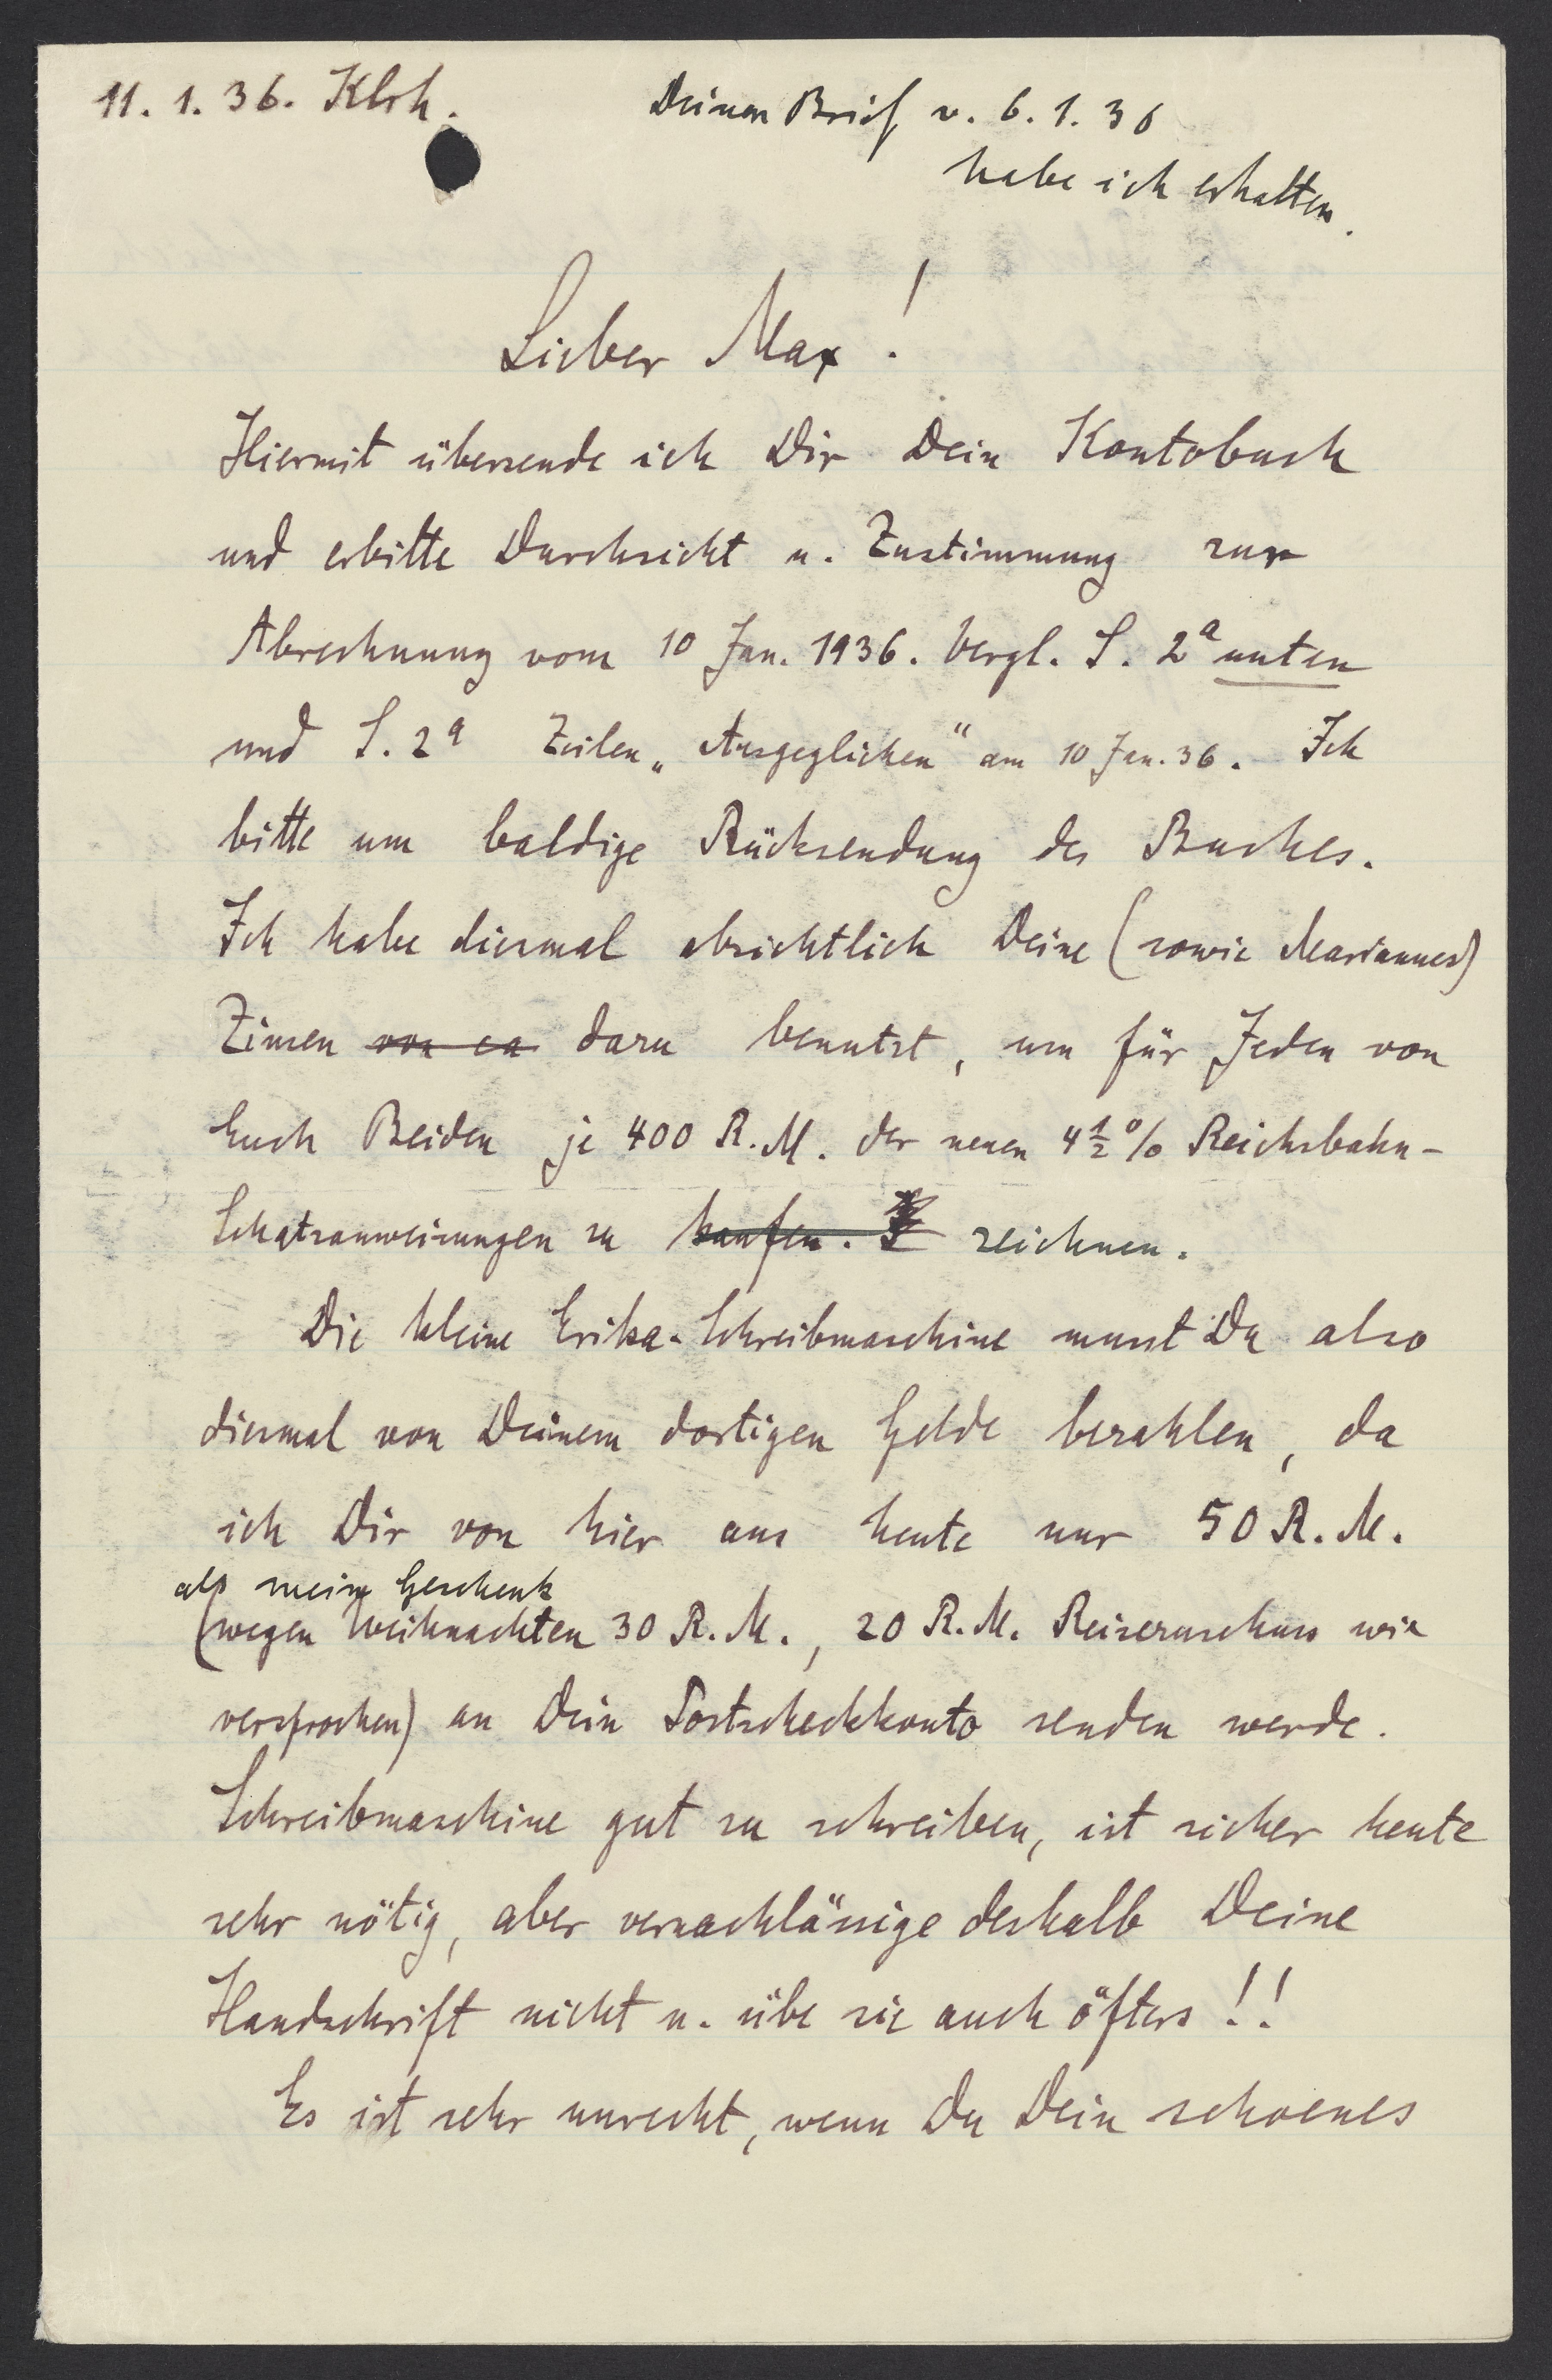 11. 1. 36. Klrh.
Deinen Brief v. 6. 1. 36
habe ich erhalten.
Lieber Max!
Hiermit übersende ich Dir Dein Kontobuch
und erbitte Durchsicht u. Zustimmung zur
Abrechnung vom 10 Jan. 1936. Vergl. S. 2a unten
und S. 2a Zeilen „Ausgeglichen" am 10 Jan. 36. Ich
bitte um baldige Rücksendung des Buches.
Ich habe diesmal absichtlich Deine (sowie Mariannes)
Zinsen von ca dazu benutzt, um für Jeden von
Euch Beiden je 400 R.M. der neuen 4½% Reichsbahn-
Schatzanweisungen zu kaufen. I zeichnen.
Die kleine Erika-Schreibmaschine musst Du also
diesmal von Deinem dortigen Gelde bezahlen, da
ich Dir von hier aus heute nur 50 R.M.
als mein Geschenk
(wegen Weihnachten 30 R.M., 20 R.M. Reisezuschuss wie
versprochen) an Dein Postscheckkonto senden werde.
Schreibmaschine gut zu schreiben, ist sicher heute
sehr nötig, aber vernachlässige deshalb Deine
Handschrift nicht u. übe sie auch öfters!!
Es ist sehr unrecht, wenn Du Dein schoenes